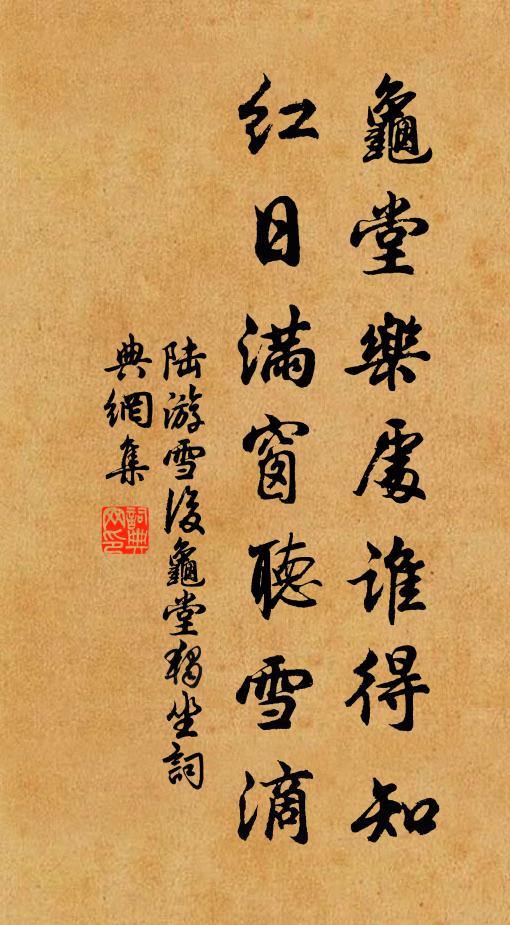 龜堂樂處誰得知
紅日滿窗聽雪滴
陆游雪後龜堂獨坐詞
典網集
詞典網印